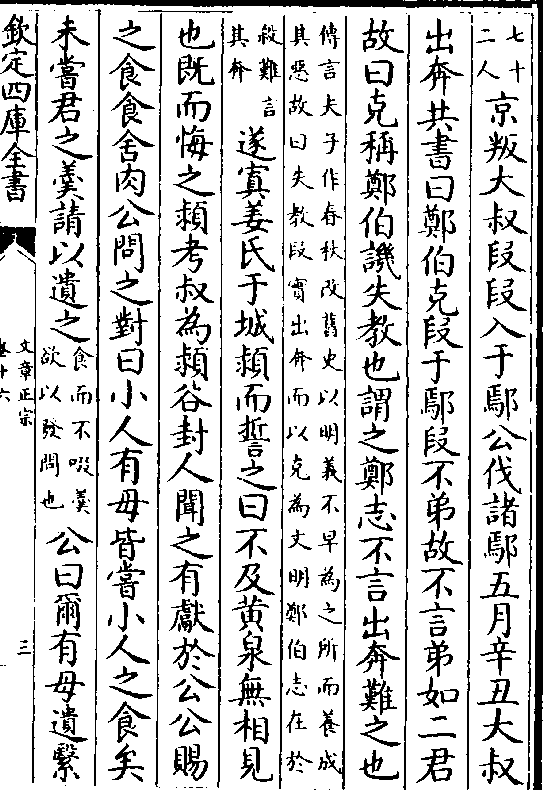 七十二人京叛大叔段段入于鄢公伐諸鄢五月辛丑大叔
出奔共書曰鄭伯克段于鄢段不弟故不言弟如二君
故曰克稱鄭伯譏失教也謂之鄭志不言出奔難之也
傳言夫子作春秋改舊史以明義不早為之所而養成
其惡故曰失教段實出奔而以克為文明鄭伯志在於
殺難言其奔遂寘姜氏于城潁而誓之曰不及黄泉無相見
也既而悔之潁考叔為潁谷封人聞之有獻於公公賜
之食食舍肉公問之對曰小人有母皆嘗小人之食矣
未嘗君之羹請以遺之食而不啜羹欲以發問也公曰爾有母遺繄
欽定四庫全書
文章正宗
卷十六
三